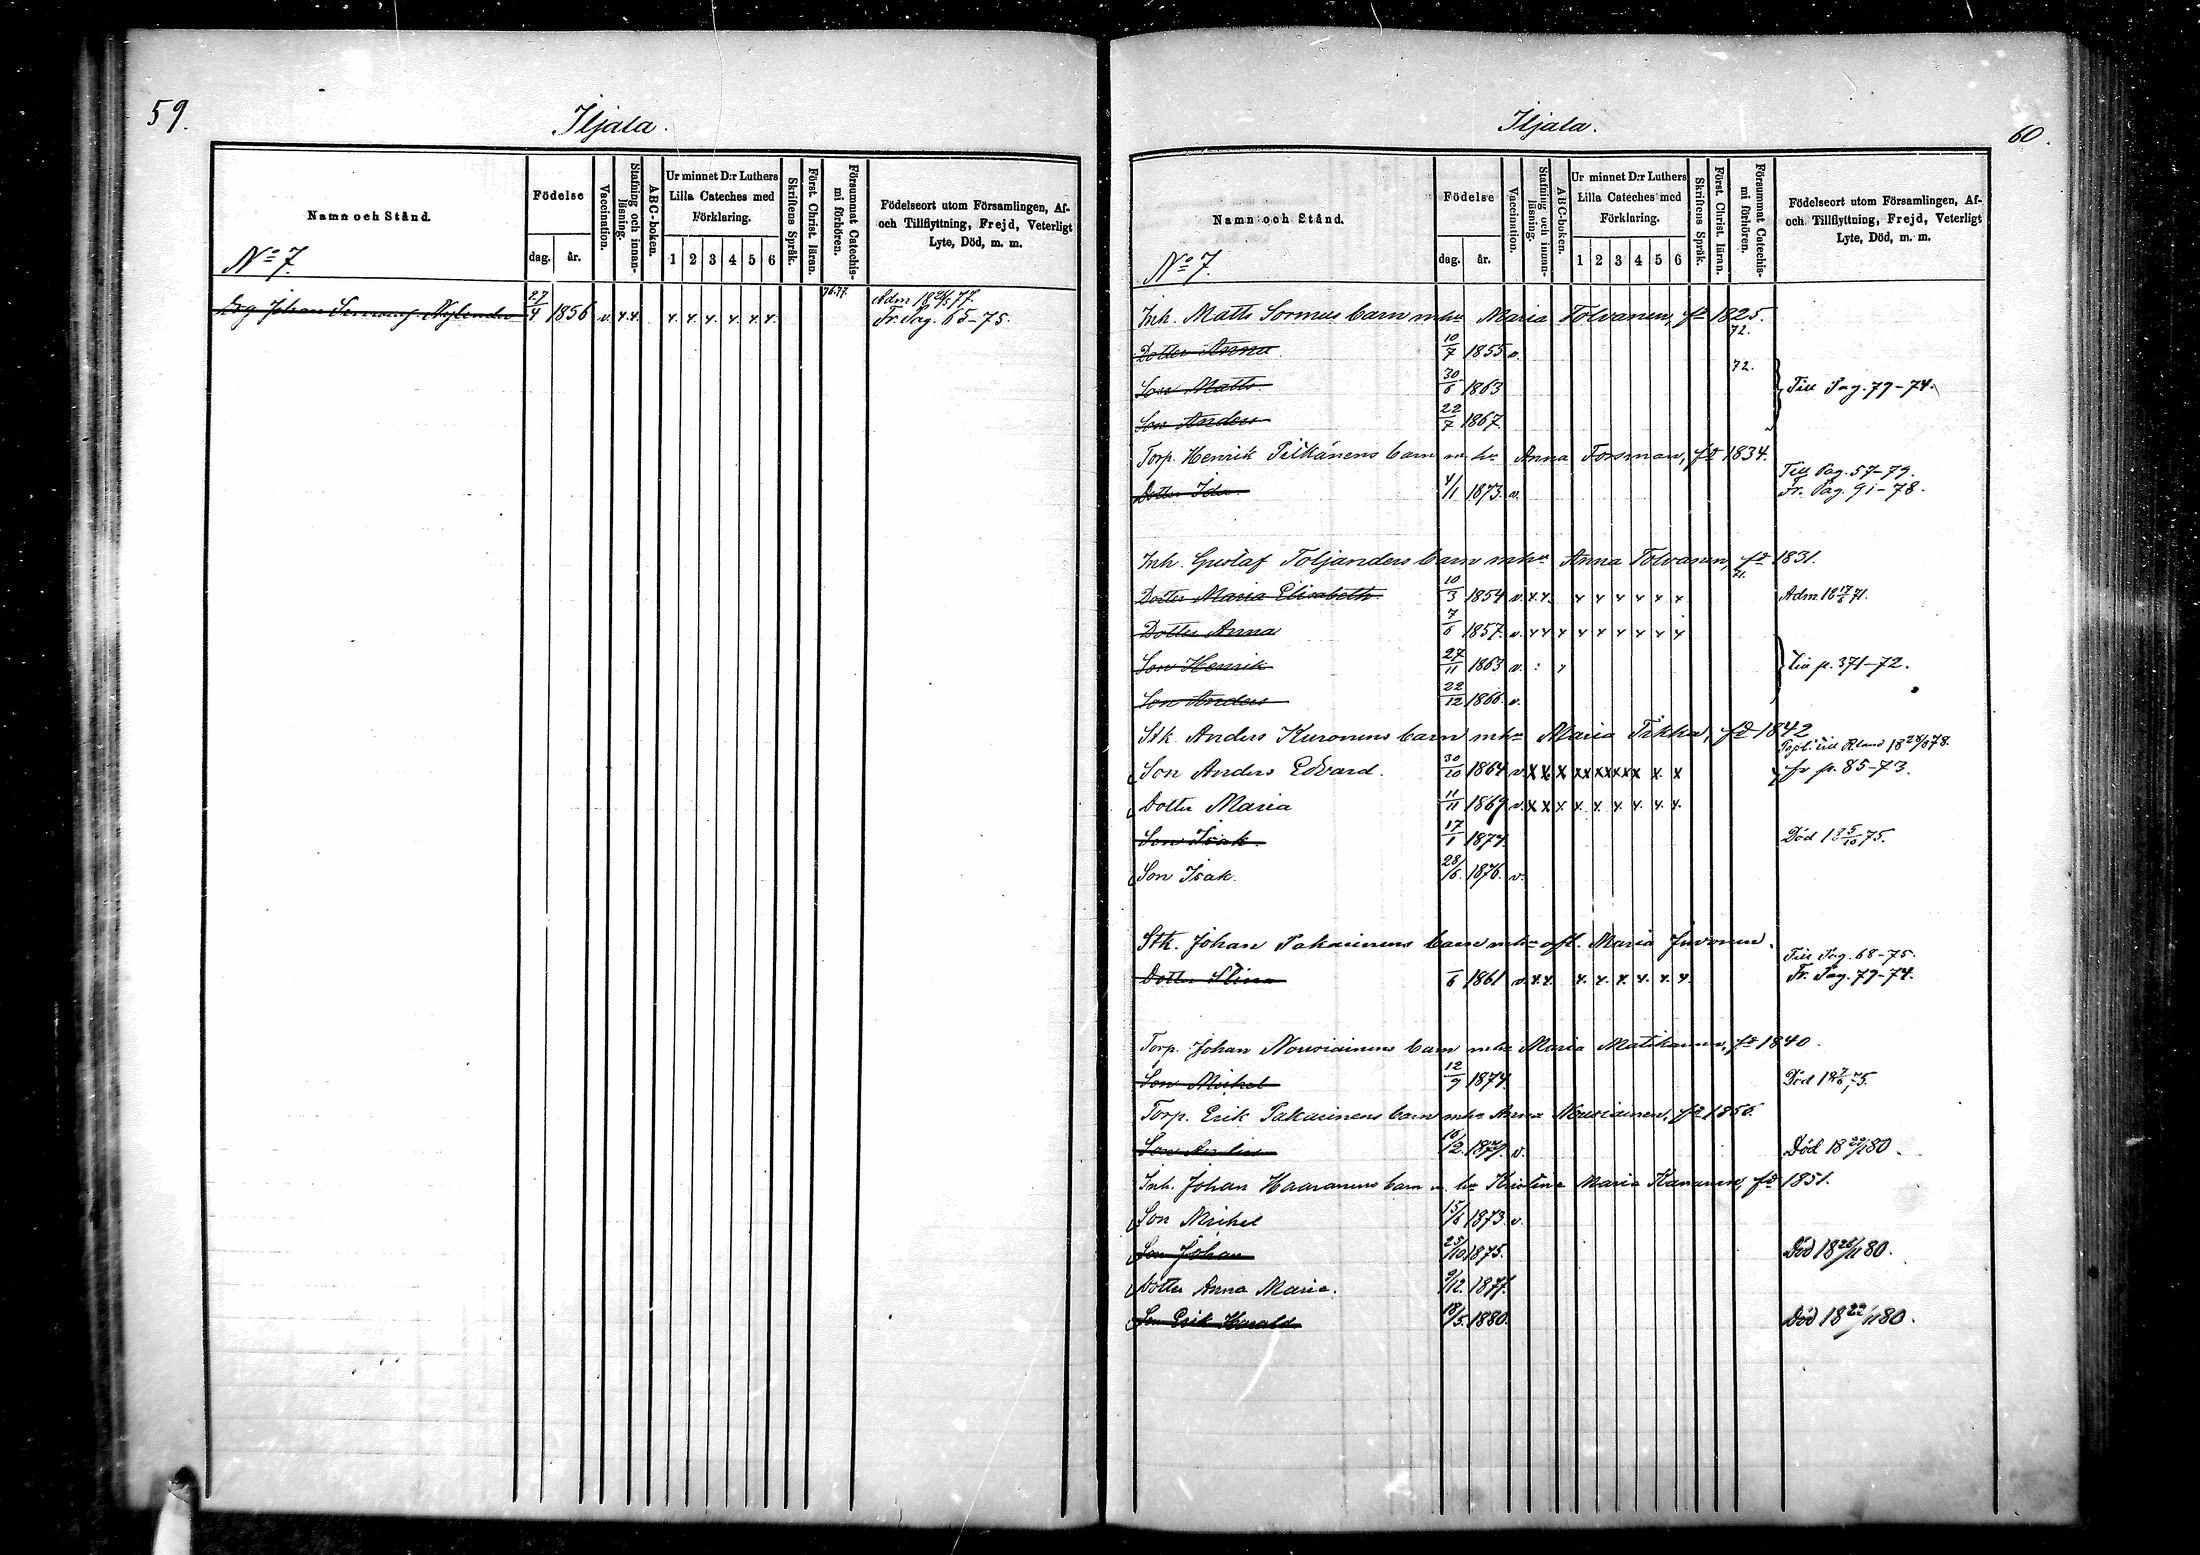 59.
Iljala.
Namn och Stånd.
Födelse
dag. år.
Vaccination.
Stafning och innan-läsning.
ABC-boken.
Ur minnet D:r Luthers Lilla Cateches med Förklaring.
1 2 3 4 5 6
Skriftens Språk.
Först. Christ. läran.
Försummat Catechis-mi förhören.
Födelseort utom Församlingen, Af- och Tillflyttning, Frejd, Veterligt Lyte, Död, m. m.
No 7.
76.77. Adm 18 77.
Johan Nylander 27/4 1856 v. x. x. x. x. x. x. x. x. Fr. Pag. 65-75.
Iljala.
60.
Namn och Stånd.
Födelse
dag. år.
Vaccination.
Stafning och innan-läsning.
ABC-boken.
Ur minnet D:r Luthers Lilla Cateches med Förklaring.
1 2 3 4 5 6
Skriftens Språk.
Först. Christ. läran.
Försummat Catechis-mi förhören.
Födelseort utom Församlingen, Af- och Tillflyttning, Frejd, Veterligt Lyte, Död, m. m.
No 7.
Inh. Matts Sormus barn m hu Maria Tolvanen, fd 1825.
Dotter Anna 10/7 1855 v. 72.
Son Matts 30/6 1863 72. Till Pag. 79-74.
Son Anders 22/7 1867.
Torp. Henrik Pitkänens barn m hu Anna Forsman, fd 1834.
Till Pag. 57-79.
Dotter Ida 4/1 1873. v. Fr. Pag. 91-78.
Inh. Gustaf Toljanders barn m hu Anna Tolvanen, fd 1831.
Dotter Maria Elisabeth 10/3 1854 v. x. x. x x x x x x 71. Adm 18 17/6 71.
Dotter Anna 7/6 1857. v. x x x x x x x x x
Son Henrik 27/11 1863 v. Till p. 371-72.
Son Anders 22/12 1866. v.
Stk. Anders Kuronens barn m hu Maria Tikka, fd 1842
till Rland 18 78.
Son Anders Edvard. 30/10 1864 v. x x x x x x x x x x x fr p. 85-73.
Dotter Maria 11/11 1869 v. x x x. x. x. x. x. x. x.
Son Isak. 17/1 1874. Död 18 5/10 75.
Son Isak. 28/6. 1876. v.
Stk. Johan Pakarinens barn m hu afl. Maria Juvonen.
Till Pag. 68-75.
Dotter Stina -/6 1861 v. x. x. x. x. x. x. x. x. Fr. Pag. 79-74.
Torp. Johan Nousiainens barn m hu Maria Matikainen, fd 1840.
Son Mikel 12/9 1874. Död 18 7/6 75.
Torp. Erik Pakarinens barn m hu Anna Nousiainen, fd 1856.
Son 16/2. 1879. v. Död 18 80.
Inh. Johan Haaranens barn m hu Kristina Maria fd 1851.
Son Mikel 15/6 1873. v.
Son Johan 25/10 1875. Död 18 80.
Dotter Anna Maria. 9/12. 1877.
Son Erik Harald 18/5. 1880. Död 18 80.